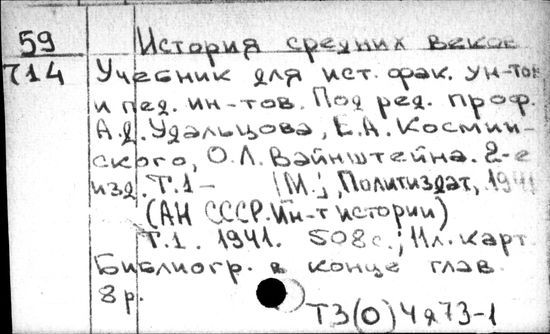 59 История средних веков
Т14 Учебник для ист. фак. ун-тов
и пед. ин-тов. Под ред. проф.
А.Д. Удальцова, Е.А. Космин-
ского, О.Л. Вайнштейна. 2-е
изд. Т.1- М.; Политиздат, 1941
(АН СССР. Ин-т истории)
Т.1. 1941. 508с.; Ил. карт.
Библиогр. в конце глав.
8р.
Т3(0)4я73-1